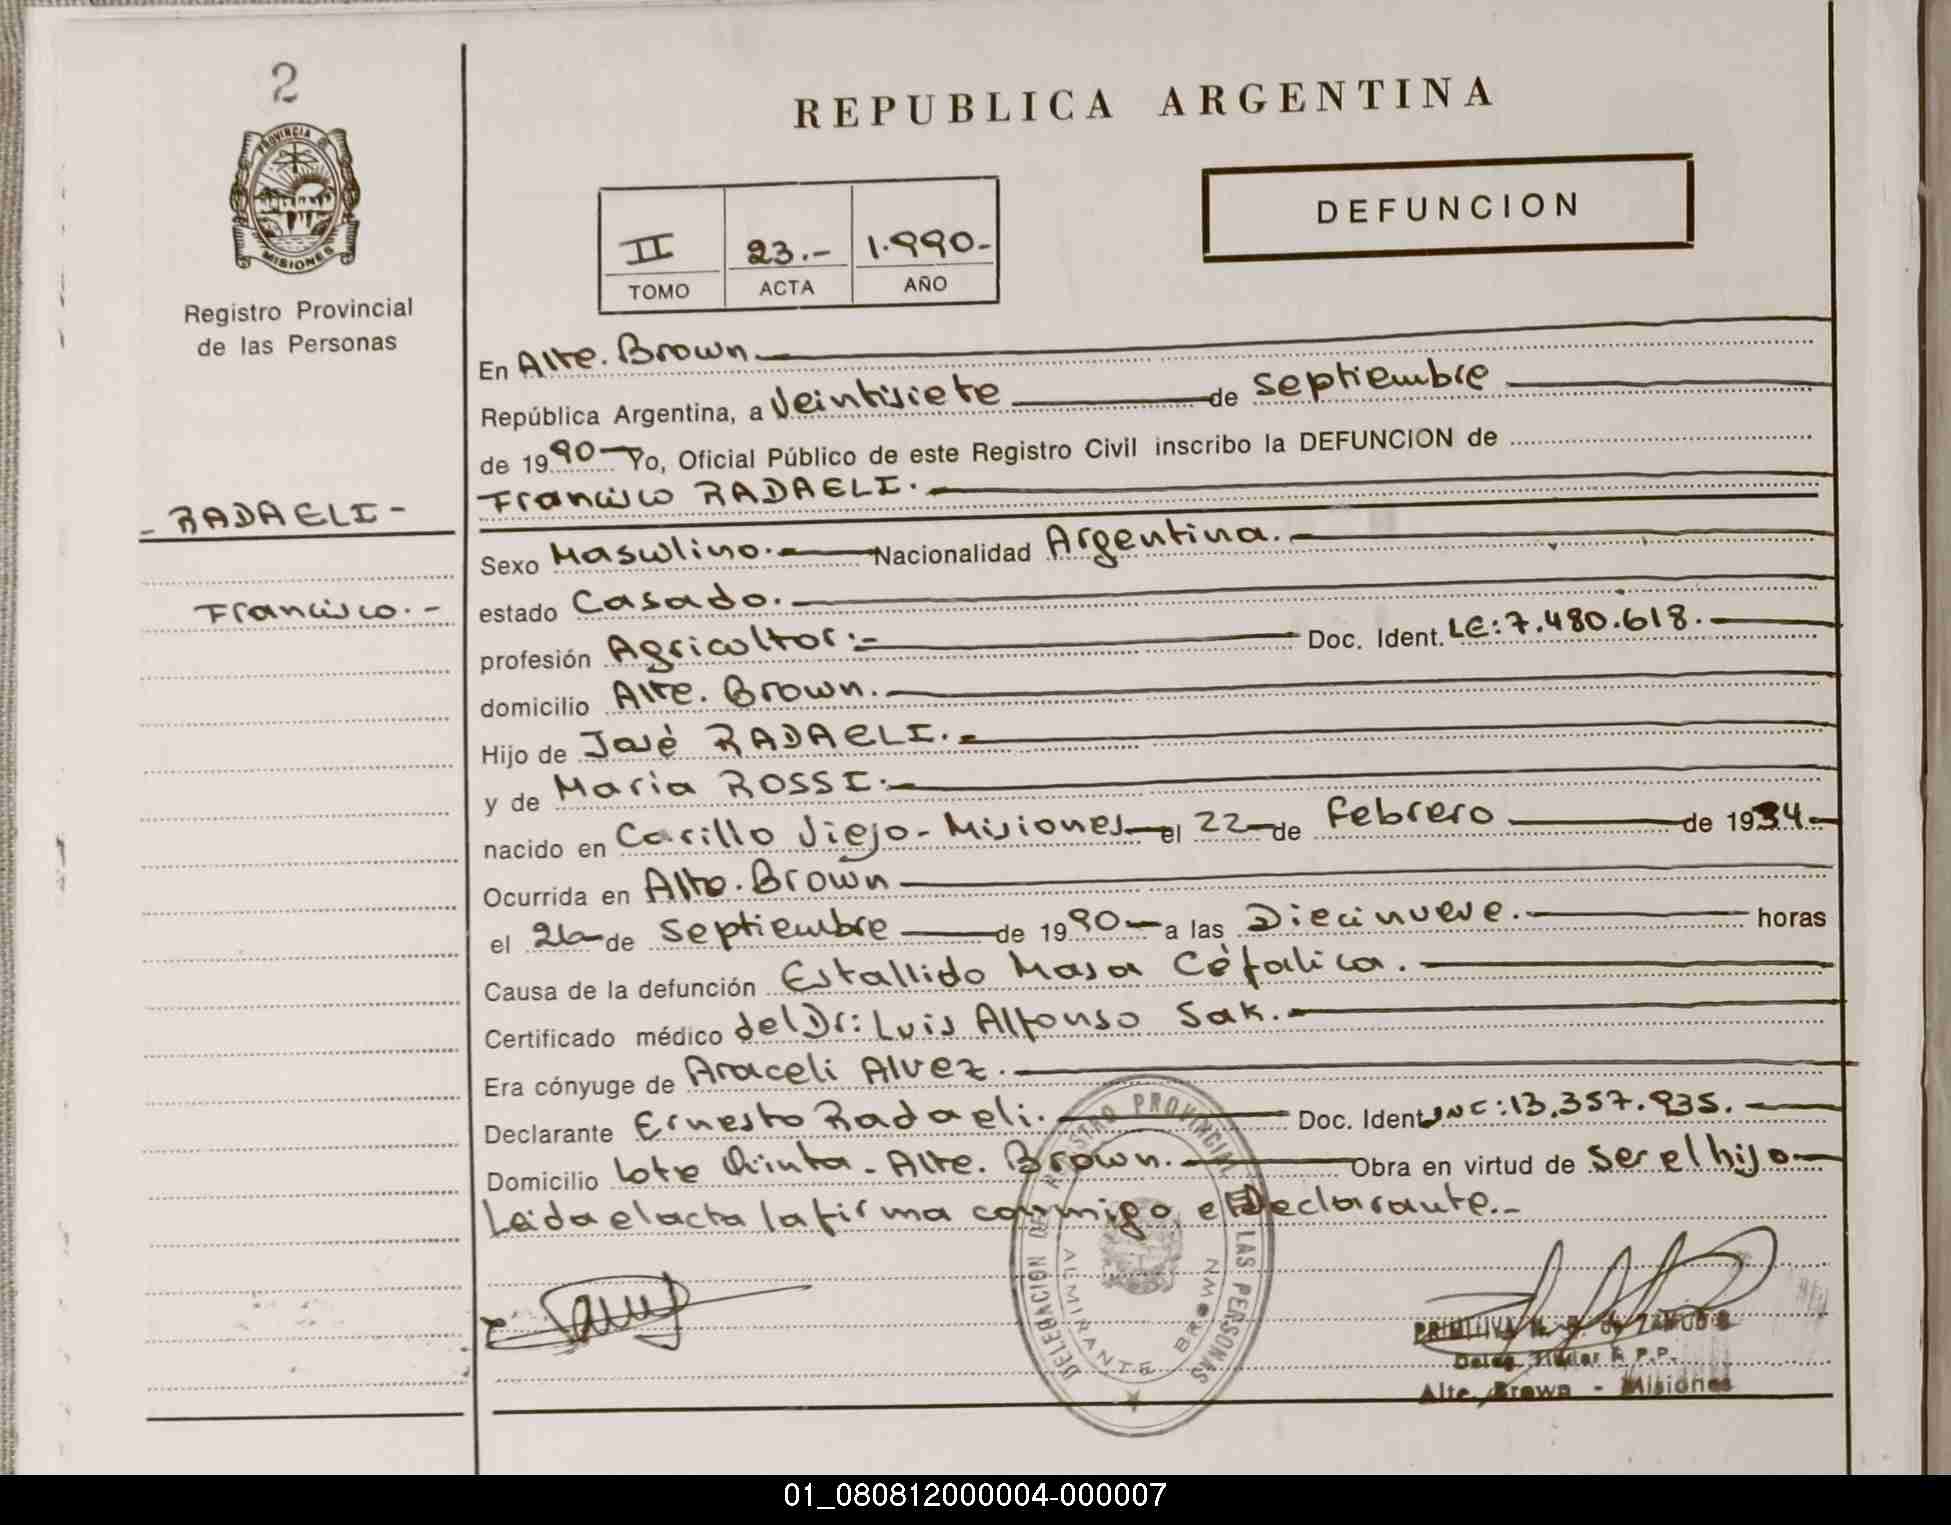 2
PROVINCIA DE
MISIONES
Registro Provincial
de las Personas
- RADAELI -
Francisco. -
REPUBLICA ARGENTINA
DEFUNCION
II 23.- 1.990-
TOMO ACTA AÑO
En Alte. Brown
República Argentina, a Veintisiete de Septiembre
de 1990 Yo, Oficial Público de este Registro Civil inscribo la DEFUNCION de
Francisco RADAELI.
Sexo Masculino. Nacionalidad Argentina.
estado Casado.
profesión Agricultor:- Doc. Ident. LE: 7.480.618.
domicilio Alte. Brown.
Hijo de José RADAELI.
y de Maria ROSSI.
nacido en Cerillo Viejo - Misiones el 22 de Febrero de 1934
Ocurrida en Alte. Brown
el 26 de Septiembre de 1990 a las Diecinueve. horas
Causa de la defunción Estallido Masa Céfalica.
Certificado médico del Dr: Luis Alfonso Sak.
Era cónyuge de Araceli Alvez.
Declarante Ernesto Radaeli. Doc. Ident 13.357.935.
Domicilio Lote Quinta - Alte. Brown. Obra en virtud de Ser el hijo
Leida el acta la firma conmigo el Declarante.-
DELEGACION DE REGISTRO PROVINCIAL DE LAS PERSONAS
ALMIRANTE BROWN
PRIMITIVA de ZAMUDIO
Deleg. Titular R. P.P.
Alte. Brown - Misiones
01_080812000004-000007